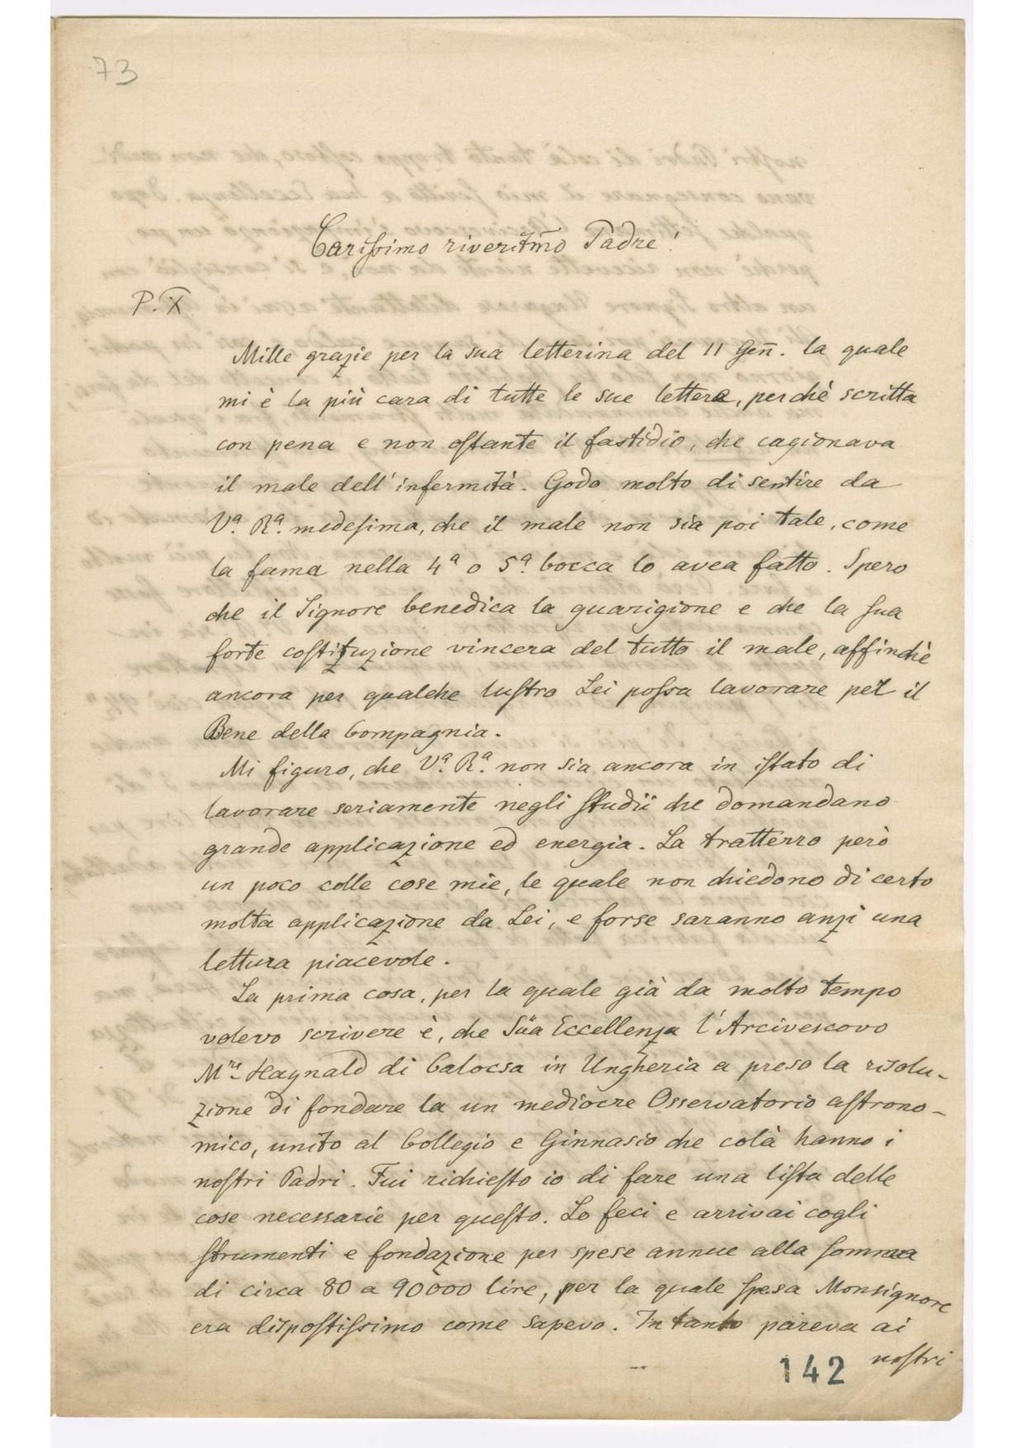 73
Carissimo riveritmo Padre!
P. X
Mille grazie per la sua letterina del 11 Gen̄. la quale
mi è la più cara di tutte le sue lettere, perchè scritta
con pena e non ostante il fastidio, che cagionava
il male dell'infermità. Godo molto di sentire da
Vª. Rª. medesima, che il male non sia poi tale, come
la fama nella 4ª o 5ª. bocca lo avea fatto. Spero
che il Signore benedica la guarigione e che la sua
forte costituzione vincera del tutto il male, affinchè
ancora per qualche lustro Lei possa lavorare pel il
Bene della Compagnia.
Mi figuro, che Vª. Rª. non sia ancora in istato di
lavorare seriamente negli studii che domandano
grande applicazione ed energia. La tratterro però
un poco colle cose mie, le quale non chiedono di certo
molta applicazione da Lei, e forse saranno anzi una
lettura piacevole.
La prima cosa, per la quale già da molto tempo
volevo scrivere è, che Süa Eccellenza l'Arcivescovo
Mre. Haynald di Calocsa in Ungheria a preso la risolu-
zione di fondare la un mediocre Osservatorio astrono-
mico, unito al Collegio e Ginnasio che colà hanno i
nostri Padri. Fui richiesto io di fare una lista delle
cose necessarie per questo. Lo feci e arrivai cogli
strumenti e fondazione per spese annue alla somma
di circa 80 a 90000 lire, per la quale spesa Monsignore
era dispostissimo come sapevo. In tanto pareva ai
nostri
142